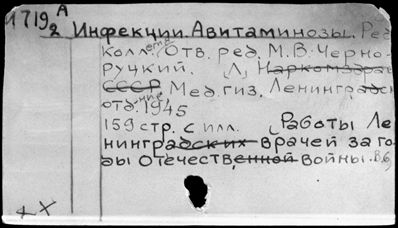 А
1719
2 Инфекции. Авитаминозы. Ред
колл. Отв. ред. М. В. Черно-
руцкий. Л, Наркомздрав
СССР Медгиз. Ленинградск
отд-ние 1945
159 стр. с илл. (Работы Ле
нинградских врачей за го-
ды Отечественной войны. В.6)